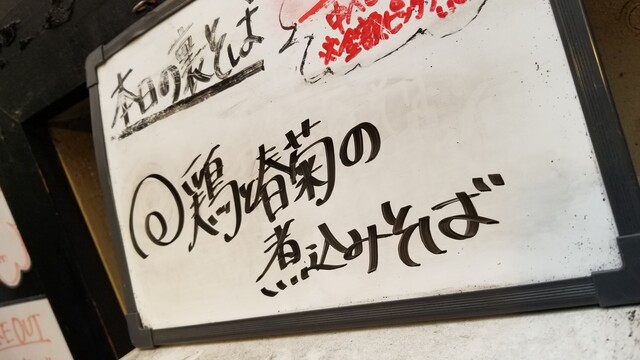 本日の裏そば
※全部ピック
鶏と春菊の
煮込みそば
KE OUT